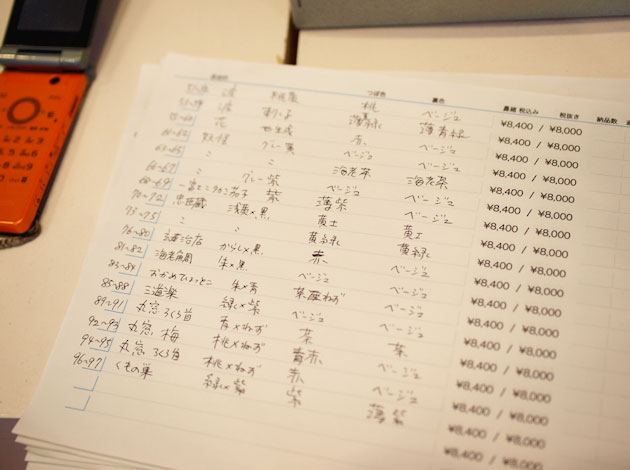 つぼ色 裏色 鼻緒 税込み 税抜き 納品数
波 桃 ベージュ ¥8,400 / ¥8,000
波 薄緑 薄青緑 ¥8,400 / ¥8,000
花 ベージュ ¥8,400 / ¥8,000
妖怪 グレー×黒 ベージュ ¥8,400 / ¥8,000
〃 〃 海老茶 海老茶 ¥8,400 / ¥8,000
66~67 グレー×紫 ベージュ ベージュ ¥8,400 / ¥8,000
68~69 一富士二タカ三茄子 紫 薄紫 ベージュ ¥8,400 / ¥8,000
70~72 忠臣蔵 浅黄×黒 黄土 黄土 ¥8,400 / ¥8,000
73~75 〃 〃 黄緑 黄緑 ¥8,400 / ¥8,000
76~80 からし×黒 赤 ベージュ ¥8,400 / ¥8,000
81~82 朱×黒 ベージュ ベージュ ¥8,400 / ¥8,000
83~84 おかめひょっとこ 朱×青 ベージュ ¥8,400 / ¥8,000
85~88 三道楽 緑×紫 ベージュ ベージュ ¥8,400 / ¥8,000
89~91 丸窓ろくろ首 青×ねず 茶 茶 ¥8,400 / ¥8,000
92~93 丸窓 梅 桃×ねず 青赤 ベージュ ¥8,400 / ¥8,000
94~95 丸窓 ろくろ首 桃×ねず 赤 ベージュ ¥8,400 / ¥8,000
96~97 くもの巣 緑×紫 紫 薄紫 ¥8,400 / ¥8,000